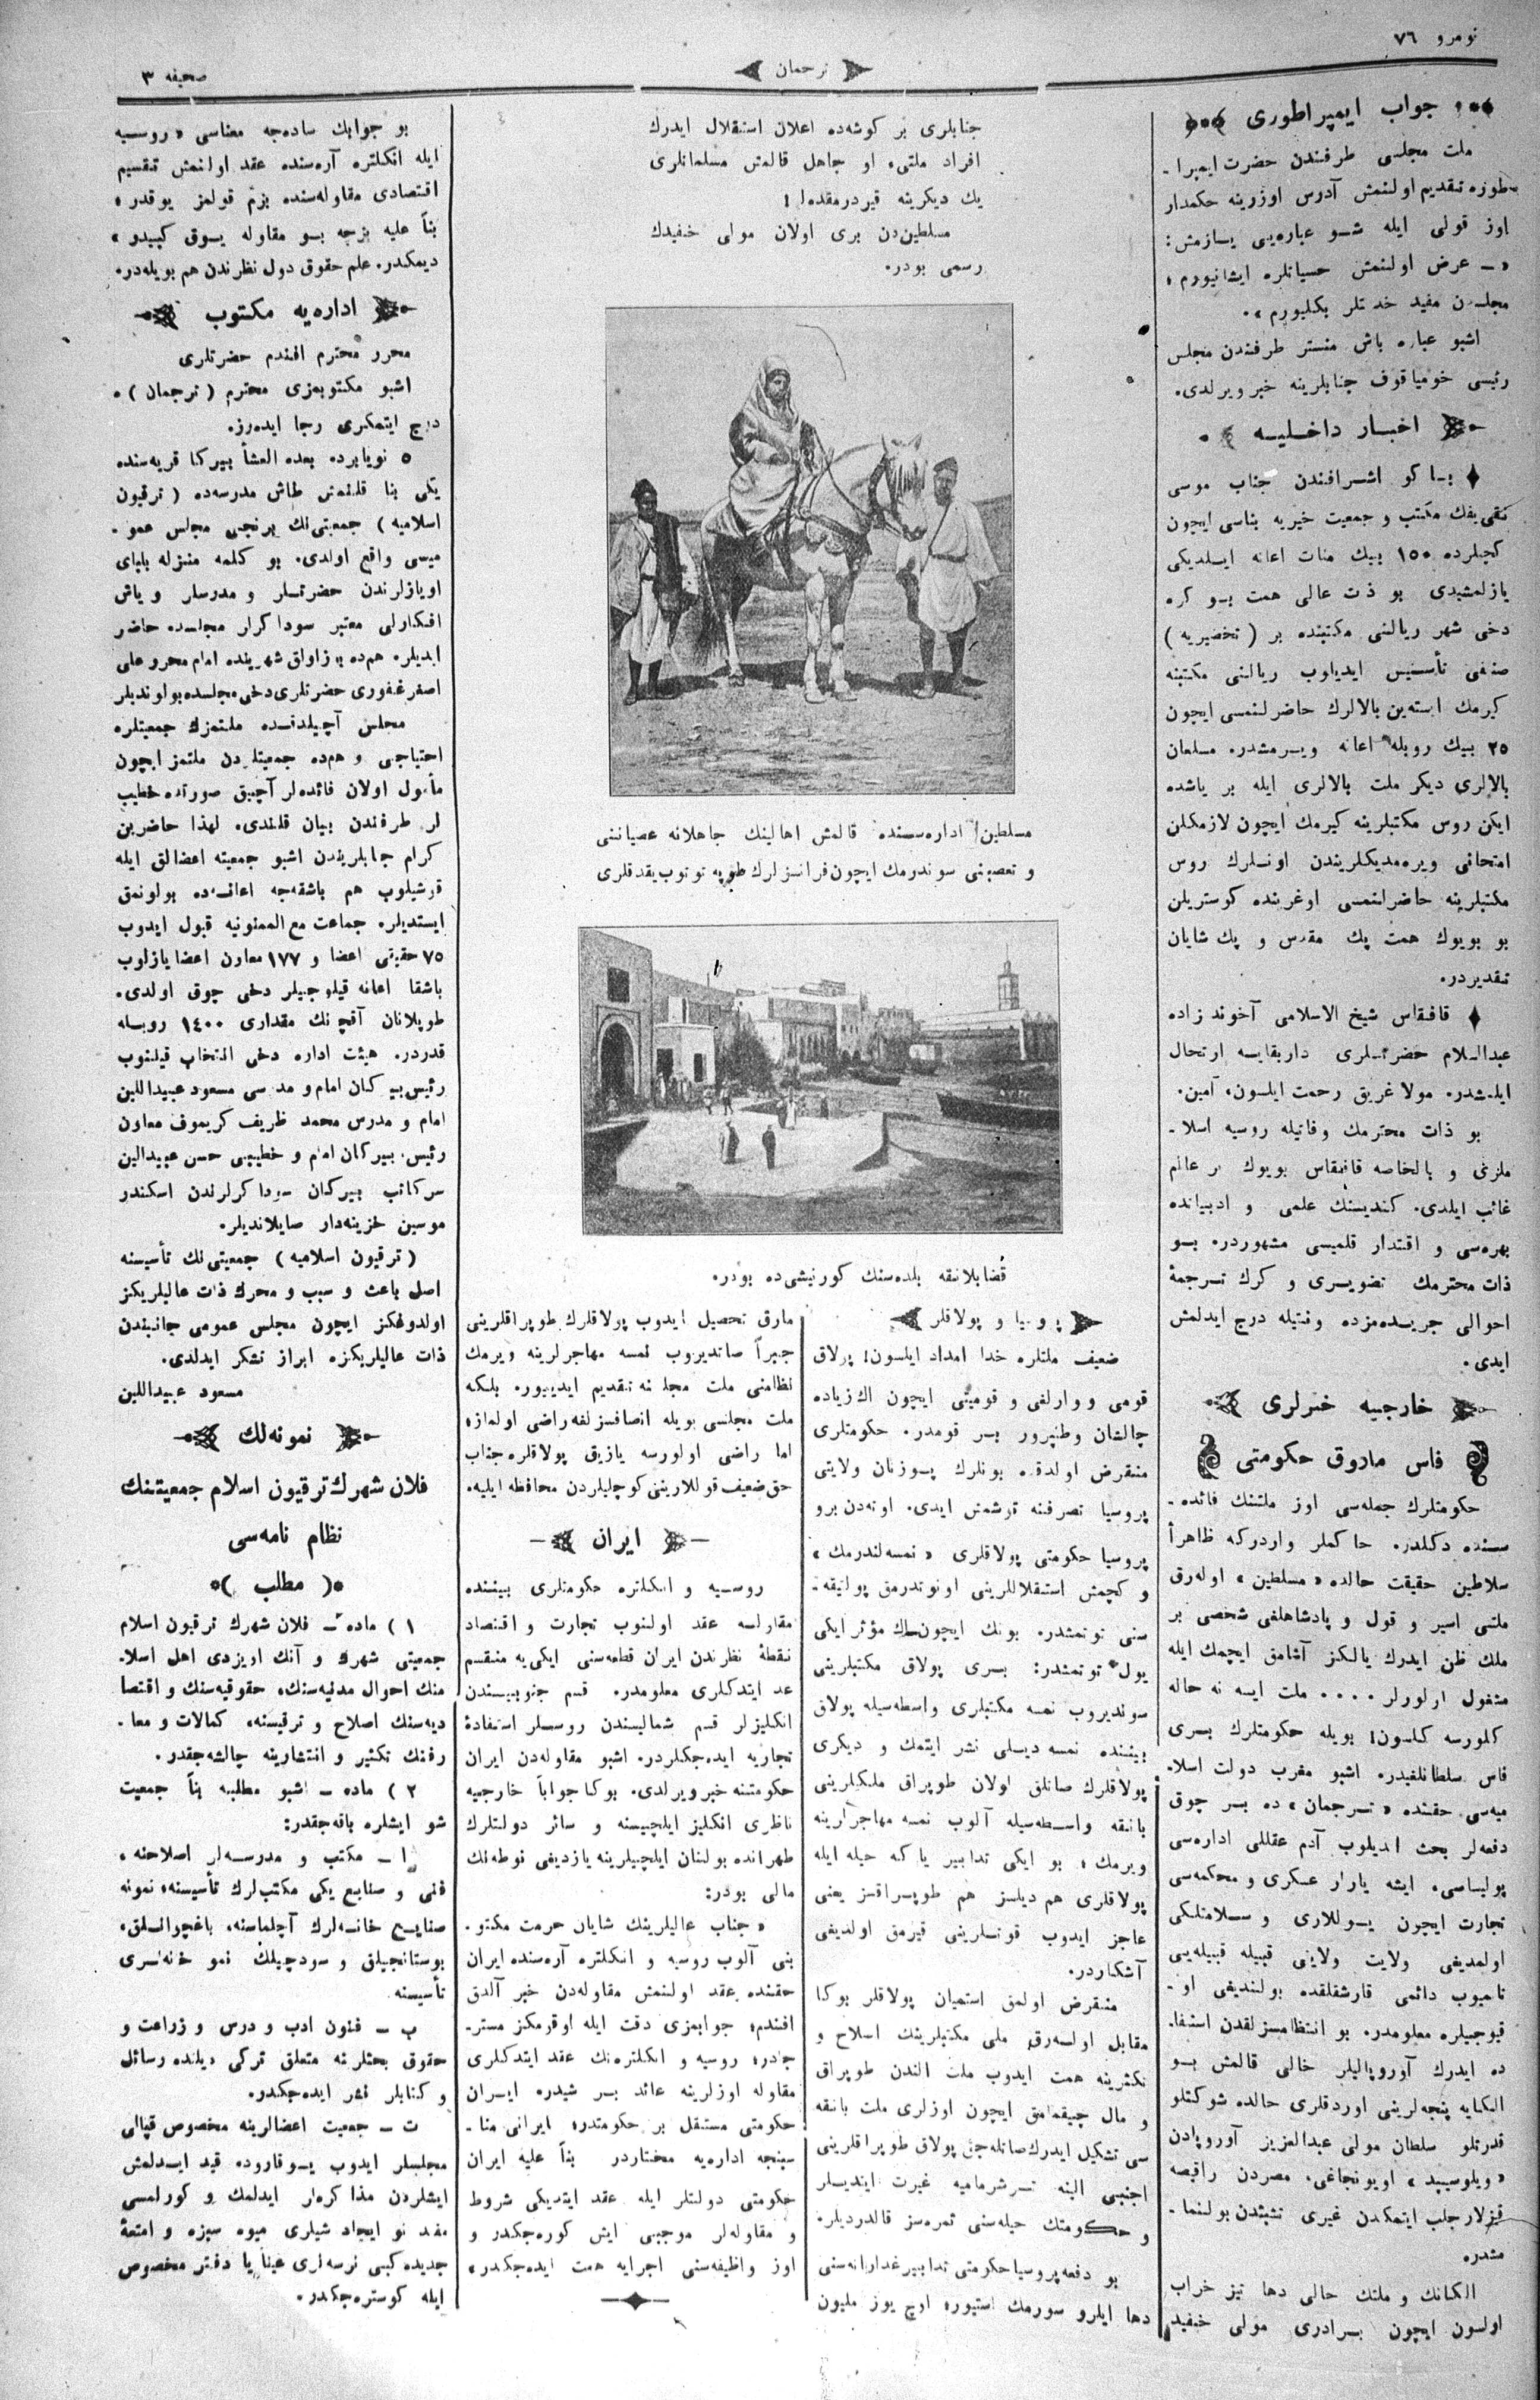 نومرو ٧٦
ترجمان
صحیفه ٣
جواب ایمپراطوری
ملت مجلسی طرفندن حضرت ایمپرا-
طوره تقدیم اولنمش آدرس اوزرینه حکمدار
اوز قولی ایله شو عباره‌یی یازمش:
«— عرض اولنمش حسیاتلره اینانیورم؛
مجلسدن مفید خدمتلر بکلیورم».
اشبو عباره باش منستر طرفندن مجلس
رئیسی خومیاقوف جنابلرینه خبر ویرلدی.
اخبار داخلیه
باکو اشرافندن جناب موسی
نقی‌یفك مکتب و جمعیت خیریه بناسی ایچون
کچیلرده ١٥٠ بیك منات اعانه ایلدیکی
یازلمشیدی بو ذات عالی همت بو کره
دخی شهر ریالنی مکتبنده بر (تحضیریه)
صنفی تأسیس ایدیلوب ریالنی مکتبنه
کیرمك ایسته‌ین بالالرك حاضرلنمسی ایچون
٢٥ بیك روبله اعانه ویرمشدر. مسلمان
بالالری دیکر ملت بالالری ایله بر یاشده
ایکن روس مکتبلرینه کیرمك ایچون لازمکلن
امتحانی ویره‌مدیکلریندن اونلرك روس
مکتبلرینه حاضرلنمسی اوغرنده کوستریلن
بو بویوك همت پك مقدس و پك شایان
تقدیردر.
قافقاس شیخ الاسلامی آخوند زاده
عبدالسلام حضرتلری داربقایه ارتحال
ایلمشدر. مولا غریق رحمت ایلسون، آمین.
بو ذات محترمك وفاتیله روسیه اسلا-
ملری و بالخاصه قافقاس بویوك بر عالم
غائب ایلدی. کندیسنك علمی و ادبیاتده
بهره‌سی و اقتدار قلمیسی مشهوردر. بو
ذات محترمك تصویری و کرك ترجمهٔ
احوالی جریده‌مزده وقتیله درج ایدلمش
ایدی.
خارجیه خبرلری
فاس مادوق حکومتی
حکومتلرك جمله‌سی اوز ملتنك فائده-
سنده دکلدر. حاکملر واردرکه ظاهراً
سلاطین حقیقت حالده «مسلطین» اوله‌رق
ملتی اسیر و قول و پادشاهلغی شخصی بر
ملك ظن ایدرك یالکز آشامق ایچمك ایله
مشغول اولورلر .... ملت ایسه نه حاله
کلورسه کلسون! بویله حکومتلرك بری
فاس سلطانلغیدر. اشبو مغرب دولت اسلا-
میه‌سی حقنده «ترجمان» ده بر چوق
دفعه‌لر بحث ایدیلوب آدم عقللی اداره‌سی
پولیساسی، ایشه یارار عسکری و محکمه‌سی
تجارت ایچون یوللاری و سلامتلکی
اولمدیغی ولایت ولایتی قبیله قبیله‌یی
تانمیوب دائمی قارشقلقده بولندیغی او-
قیوجیلره معلومدر. بو انتظامسزلقدن استفا-
ده ایدرك آوروپالیلر خالی قالمش بو
الکایه پنجه‌لرینی اوردقلری حالده شوکتلو
قدرتلو سلطان مولی عبدالعزیز آوروپادن
«ویلوسیپد» اویونجاغی، مصردن راقصه
قیزلار جلب ایتمکدن غیری تشبثدن بولنما-
مشدر.
الکانك و ملتك حالی دها تیز خراب
اولسون ایچون برادری مولی حفید
جنابلری بر کوشه‌ده اعلان استقلال ایدرك
افراد ملتی، او جاهل قالمش مسلمانلری
یك دیکرینه قیردرمقده‌ !
مسلطین‌دن بری اولان مولی حفیدك
رسمی بودر.
مسلطین اداره‌سنده قالمش اهالینك جاهلانه عصیاننی
و تعصبنی سوندرمك ایچون فرانسزلرك طوپه توتوب یقدقلری
قضابلانقه بلده‌سنك کورنیشی‌ده بودر.
پروسیا و پولاقلر
ضعیف ملتلره خدا امداد ایلسون! پولاق
قومی و وارلغی و قومیتی ایچون اك زیاده
چالشان وطنپرور بر قومدر. حکومتلری
منقرض اولدقده بونلرك پوزنان ولایتی
پروسیا تصرفنه توشمش ایدی. اوندن برو
پروسیا حکومتی پولاقلری «نمسه‌لندرمك»
و کچمش استقلاللرینی اونوتدرمق پولیتقه-
سنی توتمشدر. بونك ایچون اك مؤثر ایکی
یول توتمشدر: بری پولاق مکتبلرینی
سوندیروب نمسه مکتبلری واسطه‌سیله پولاق
بیننده نمسه دیلی نشر ایتمك و دیکری
پولاقلرك صاتلق اولان طوپراق ملکلرینی
بانقه واسطه‌سیله آلوب نمسه مهاجرلرینه
ویرمك؛ بو ایکی تدابیر یا که حیله ایله
پولاقلری هم دیلسز هم طوپراقسز یعنی
عاجز ایدوب قوتلرینی قیرمق اولدیغی
آشکاردر.
منقرض اولمق استمیان پولاقلر بوکا
مقابل اوله‌رق ملی مکتبلرینك اسلاح و
تکثرینه همت ایدوب ملت الندن طوپراق
و مال چیقمامق ایچون اوزلری ملت بانقه
سی تشکیل ایدرك صاتله‌جق پولاق طوپراقلرینی
اجنبی النه توشرمامیه غیرت ایتدیلر
و حکومتك حیله‌سنی ثمره‌سز قالدردیلر.
بو دفعه پروسیا حکومتی تدابیر غدارانه‌سنی
دها ایلرو سورمك استیور؛ اوچ یوز ملیون
مارق تحصیل ایدوب پولاقلرك طوپراقلرینی
جبراً صاتدیروب نمسه مهاجرلرینه ویرمك
نظامنی ملت مجلسنه تقدیم ایدییور. بلکه
ملت مجلسی بویله انصافسزلغه راضی اولماز؛
اما راضی اولورسه یازیق پولاقلره جناب
حق ضعیف قوللارینی کوچلیلردن محافظه ایلیه.
ایران
روسیه و انکلتره حکومتلری بیننده
مقاوله عقد اولنوب تجارت و اقتصاد
نقطهٔ نظرندن ایران قطعه‌سنی ایکی‌یه منقسم
عد ایتدکلری معلومدر. قسم جنوبیسندن
انکلیزلر قسم شمالیسندن روسلر استفادهٔ
تجاریه ایده‌جکلردر. اشبو مقاوله‌دن ایران
حکومتنه خبر ویرلدی. بوکا جواباً خارجیه
ناظری انکلیز ایلچیسنه و سائر دولتلرك
طهرانده بولنان ایلچیلرینه یازدیغی نوطه‌نك
مالی بودر:
«جناب عالیلرینك شایان حرمت مکتو-
بنی آلوب روسیه و انکلتره آره‌سنده ایران
حقنده عقد اولنمش مقاوله‌دن خبر آلدق
افندم؛ جوابمزی دقت ایله اوقرمکز مستر-
جادر؛ روسیه و انکلتره‌نك عقد ایتدکلری
مقاوله اوزلرینه عائد بر شیدر، ایران
حکومتی مستقل بر حکومتدر؛ ایرانی منا-
سبنجه اداره‌یه مختاردر بناً علیه ایران
حکومتی دولتلر ایله عقد ایتدیکی شروط
و مقاوله‌لر موجبی ایش کوره‌جکدر و
اوز واظیفه‌سنی اجرایه همت ایده‌جکدر»
بو جوابك ساده‌جه معناسی «روسیه
ایله انکلتره آره‌سنده عقد اولنمش تقسیم
اقتصادی مقاوله‌سنده بزم قولمز یوقدر؛
بناً علیه بزجه بو مقاوله یوق کبیدر»
دیمکدر. علم حقوق دول نظرندن هم بویله‌در.
اداره‌یه مکتوب
محرر محترم افندم حضرتلری
اشبو مکتوبمزی محترم (ترجمان)ه
درج ایتمکزی رجا ایده‌رز.
٥ نویابرده بعده العشأ بیرکا قریه‌سنده
یکی بنا قلنمش طاش مدرسه‌ده (ترقیون
اسلامیه) جمعیتی‌نك برنجی مجلس عمو-
میسی واقع اولدی. بو کلمه منزله بابای
اویازلرندن حضرتلر و مدرسلر و یاش
افکارلی معتبر سوداکرلر مجلسده حاضر
ایدیلر. هم‌ده شهرینده امام محرر علی
اصغر غفوری حضرتلری دخی مجلسده بولوندیلر
مجلس آچیلدقده ملتمزك جمعیتلره
احتیاجی و هم‌ده جمعیتلردن ملتمز ایچون
مأمول اولان فائده‌لر آچیق صورتده خطیب
لر طرفندن بیان قلندی. لهذا حاضرین
کرام جنابلریندن اشبو جمعیته اعضالق ایله
قوشیلوب هم باشقه‌جه اعانه‌ده بولونمق
ایستدیلر. جماعت مع الممنونیه قبول ایدوب
٧٥ حقیقی اعضا و ١٧٧ معاون اعضا یازلوب
باشقا اعانه قیلوجیلر دخی چوق اولدی.
طوپلانان آقچه‌نك مقداری ١٤٠٠ روبله
قدردر. هیئت اداره دخی انتخاب قیلنوب
رئیس بیرکان امام و مدرسی مسعود عبیداللین
امام و مدرس محمد ظریف کریموف معاون
رئیس، بیرکان امام و خطیبی حسن عبیدالین
سر کاتب بیرکان سوداکرلرندن اسکندر
موسین خزینه‌دار صایلاندیلر.
(ترقیون اسلامیه) جمعیتی‌نك تأسیسنه
اصل باعث و سبب و محرك ذات عالیلریکز
اولدوغکز ایچون مجلس عمومی جانبندن
ذات عالیلریکزه ابراز تشکر ایدلدی.
مسعود عبیداللین
نمونه‌لك
فلان شهرك ترقیون اسلام جمعیتنك
نظام نامه‌سی
(مطلب)
١) ماده— فلان شهرك ترقیون اسلام
جمعیتی شهرك و آنك اویزدی اهل اسلا-
منك احوال مدنیه‌سنك، حقوقیه‌سنك و اقتصا
دیه‌سنك اصلاح و ترقیسنه، کمالات و معا-
رفنك تکثیر و انتشارینه چالشه‌جقدر.
٢) ماده— اشبو مطلبه بناً جمعیت
شو ایشلره باقه‌جقدر:
ا— مکتب و مدرسه‌لر اصلاحنه،
فنی و صنایع یکی مکتب‌لرك تأسیسنه، نمونه
صنایع خانه‌لرك آچلماسنه، باغچوانلق،
بوستانجیلق و سودچیلك نمونه خانه‌لری
تأسیسنه
ب— فنون ادب و درس و زراعت و
حقوق بحثلرنه متعلق ترکی دیلنده رسائل
و کتابلر نشر ایده‌جکدر.
ت— جمعیت اعضالرینه مخصوص قپالی
مجلسلر ایدوب یوقاروده قید ایدلمش
ایشلردن مذاکره‌لر ایدلمك و کورلمسی
مفید نو ایجاد شیلری میوه سبزه و امتعهٔ
جدیده کبی نرسه‌لری عیناً یا دفتر مخصوص
ایله کوستره‌جکدر.